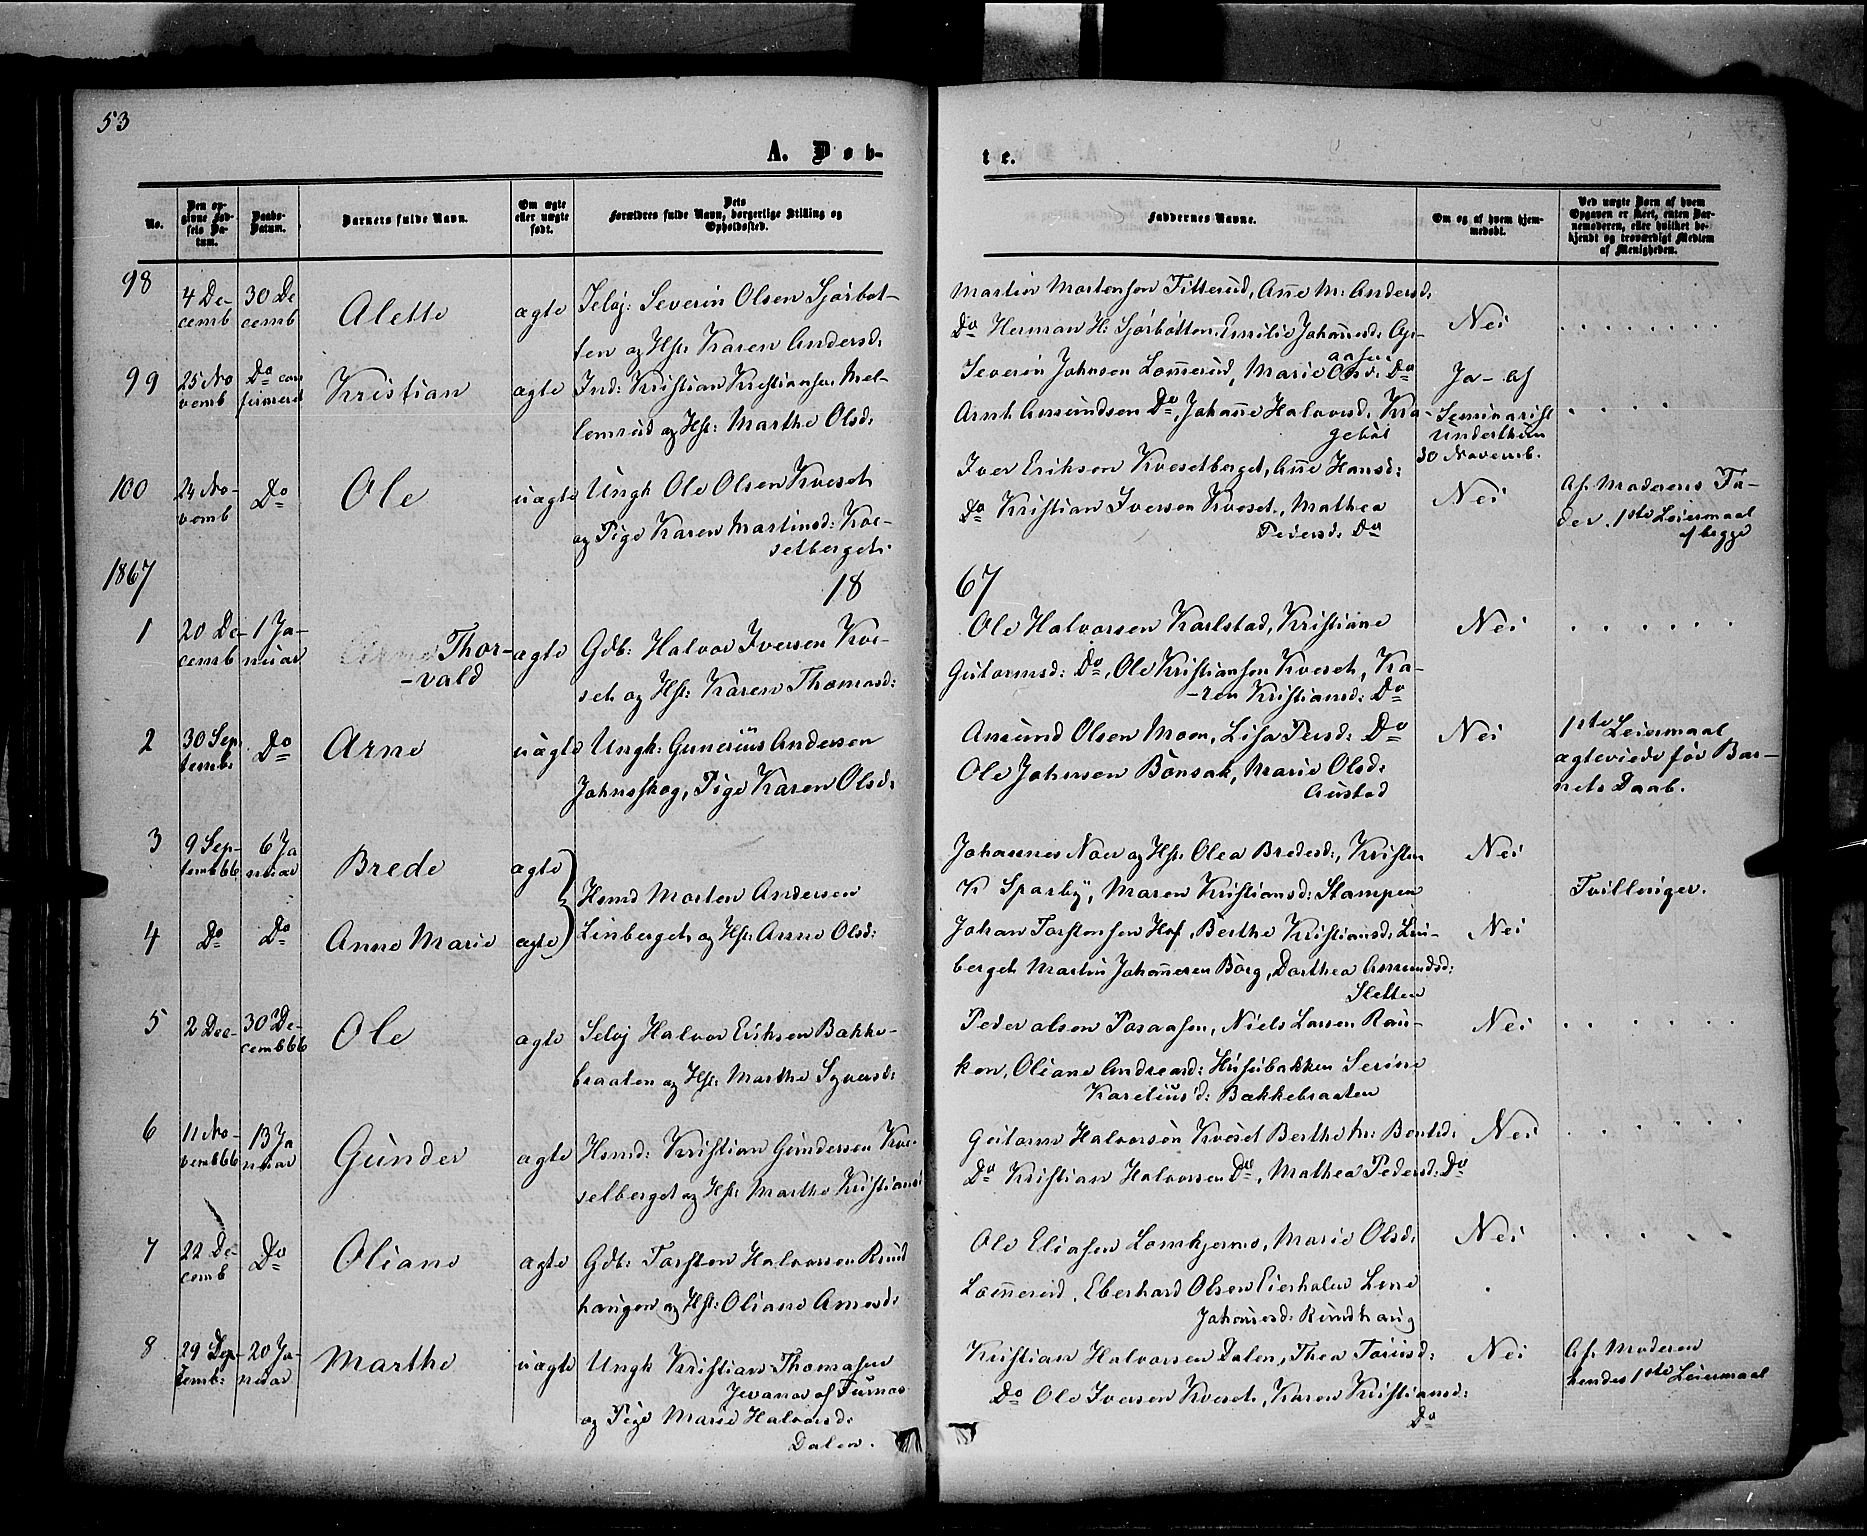 53
A. Døb-
te.
No.
Den op-
givne Fød-
sels Da-
tum.
Daabs-
Datum.
Barnets fulde Navn.
Om ægte
eller uægte
født.
Dets
Forældres fulde Navn, borgerlige Stilling og
Opholdssted.
Faddernes Navne.
Om og af hvem hjem-
medøbt.
Ved uægte Børn af hvem
Opgaven er skeet, enten Bar-
nemoderen, eller hvilket be-
kjendt og troværdigt Medlem
af Menigheden.
98
4 De-
cemb
30 De
cemb
Alette
ægte
Selvj: Severin Olsen Sjørbot-
ten og Hst: Karen Andersd:
Martin Mortensen Fitterud, Anne M: Andersd.
Do Herman H: Sjørbotten, Emilie Johannesd: Op-
aasen
Nei
99
25 No
vemb
Do con
firmeret
Kristian
ægte
Ind: Kristian Kristiansen Mel-
lemrud og Hst: Marthe Olsd:
Severin Johnsen Lomerud, Marie Do
Arnt Amundsen Do, Johanne Halvorsd. Kra-
gebøl
Ja- af
Seminarist
Underthun
30 Novemb.
100
24 No-
vemb
Do
Ole
uægte
Ungk Ole Olsen Kveset
og Pige Karen Martinsd: Kve-
setberget.
Iver Eriksen Kvesetberget, Anne Hansd:
Do Kristian Iversen Kveset, Mathea
Pedersd. Do
Nei
Af Moderens Fa-
der. 1ste Leiermaal
af begge
1867
18
67
1
20 De-
cemb
1 Ja-
nuar
Arne Thor-
-vald
ægte
Gdb: Halvor Iversen Kve-
set og Hst: Karen Thomasd:
Ole Halvorsen Karlstad, Kristiane
Gutormsd: Do, Ole Kristiansen Kveset, Ka-
-ren Kristiansd: Do
Nei
2
30 Sep
temb:
Do
Arne
uægte
Ungk: Gunerius Andersen
Johnsskog, Pige Karen Olsd:
Amund Olsen Moen, Lisa Persd: Do
Ole Johnsen Bonsak, Marie Olsd:
Austad
Nei
1ste Leiermaal
ægteviede før Bar-
nets Daab.
3
9 Sep-
temb66
6 Ja
nuar
Brede
ægte
Hsmd Morten Andersen
Johannes Noer og Hst: Olea Bredesd:, Kristen
K Sparby, Maren Kristiansd: Stampen
Nei
Tvillinger.
4
Do
Do
Anne Marie
ægte
Linberget og Hst: Anne Olsd:
Johan Torstensen Hof, Berthe Kristiansd: Lin-
berget Martin Johannesen Borg, Dorthea Amundsd:
Sletten
Nei
5
2 Dec-
30 De-
cemb66
Ole
ægte
Selvj Halvor Eriksen Bakke-
braaten og Hst: Marthe Syversd:
Peder Olsen Aasen, Niels Larsen Rau-
ken, Oliane Andreasd: Husubakken Serine
Kareliusd: Bækkebraaten
Nei
6
11 No-
vemb66
13 Ja
nuar
Gunder
ægte
Hsmd: Kristian Gundersen Kve-
setberget og Hst: Marthe Kristiansd
Gutorm Halvorsen Kveset Berthe M: Bentsd:
Do Kristian Halvorsen Do, Mathea Pedersd: Do
Nei
7
22 De-
cemb
Do
Oliane
ægte
Gdb: Torsten Halvorsen Rund
haugen og Hst: Oliane Arnesd:
Ole Eliasen Lomkjerne, Marie Olsd:
Lomerud, Eberhard Olsen Lene
Johannesd: Rundhaug
Nei
8
29 Sep-
temb:
20 Ja-
nuar
Marthe
uægte
Ungk Kristian Thomasen
Jevanor af Furnæs
og Pige Marie Halvorsd:
Dalen.
Kristian Halvorsen Dalen, Thea Toriusd:
Do Ole Iversen Kveset, Karen Kristiansd:
Do
Nei
Af Moderen
hendes 1ste Leiermaal